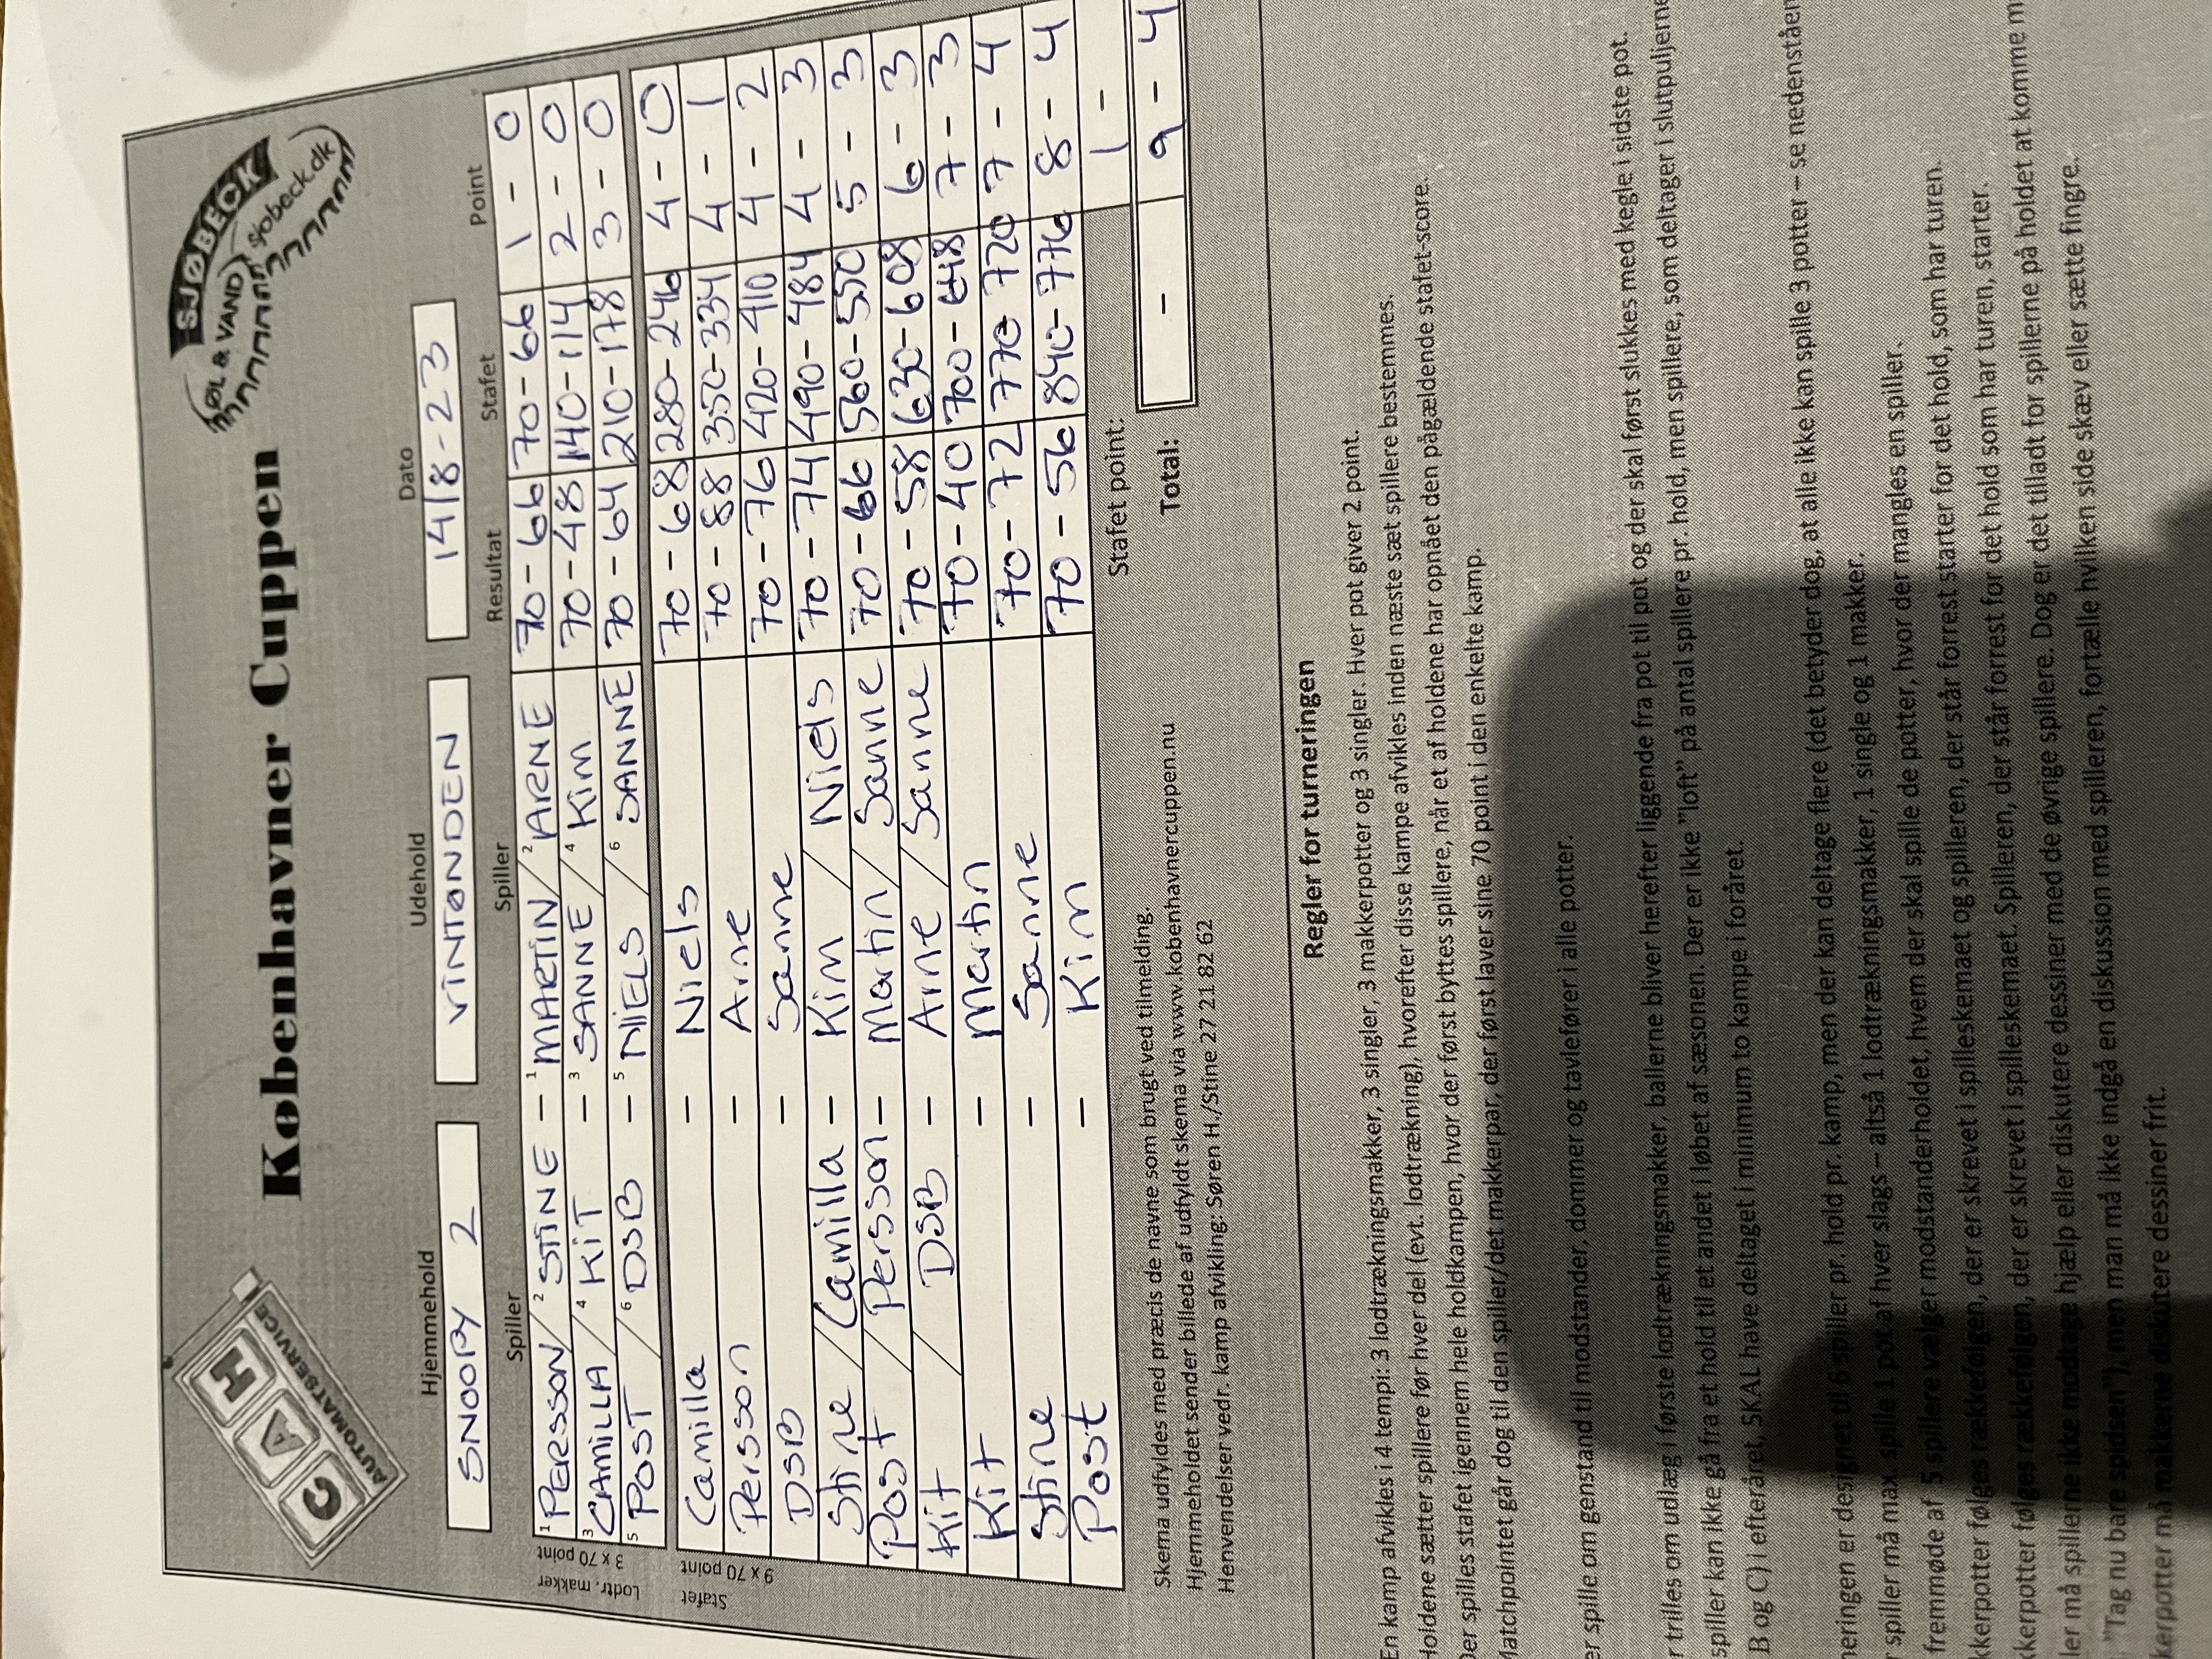 CAH
AUTOMATSERVICE
Københavner Cuppen
SJØBECK
ØL & VAND
sjobeck.dk
Hjemmehold Udehold Dato
SNOOPY 2 VINTØNDEN 14/8-23
Spiller Spiller Resultat Stafet Point
Lodtr. makker
3 x 70 point
1 PERSSON / 2 STINE - 1 MARTIN / 2 ARNE 70-66 70-66 1 - 0
3 CAMILLA / 4 KIT - 3 SANNE / 4 KIM 70-48 140-114 2 - 0
5 POST / 6 DSB - 5 NIELS / 6 SANNE 70-64 210-178 3 - 0
Stafet
9 x 70 point
Camilla - Niels 70-68 280-246 4 - 0
Persson - Arne 70-88 350-334 4 - 1
DSB - Sanne 70-76 420-410 4 - 2
Stine / Camilla - Kim / Niels 70-74 490-484 4 - 3
Post / Persson - Martin / Sanne 70-66 560-550 5 - 3
Kit / DSB - Arne / Sanne 70-58 630-608 6 - 3
Kit - Martin 70-40 700-648 7 - 3
Stine - Sanne 70-72 770-720 7 - 4
Post - Kim 70-56 840-776 8 - 4
Stafet point: 1 -
Total: - 9 - 4
Skema udfyldes med præcis de navne som brugt ved tilmelding.
Hjemmeholdet sender billede af udfyldt skema via www.kobenhavnercuppen.nu
Henvendelser vedr. kamp afvikling: Søren H./Stine 27 21 82 62
Regler for turneringen
En kamp afvikles i 4 tempi: 3 lodtrækningsmakker, 3 singler, 3 makkerpotter og 3 singler. Hver pot giver 2 point.
Holdene sætter spillere før hver del (evt. lodtrækning), hvorefter disse kampe afvikles inden næste sæt spillere bestemmes.
Der spilles stafet igennem hele holdkampen, hvor der først byttes spillere, når et af holdene har opnået den pågældende stafet-score.
Matchpointet går dog til den spiller/det makkerpar, der først laver sine 70 point i den enkelte kamp.
er spille om genstand til modstander, dommer og tavlefører i alle potter.
r trilles om udlæg i første lodtrækningsmakker, ballerne bliver herefter liggende fra pot til pot og der skal først slukes med kegle i sidste pot.
spiller kan ikke gå fra et hold til et andet i løbet af sæsonen. Der er ikke "loft" på antal spillere pr. hold, men spillere, som deltager i slutpuljerne
B og C) i efteråret, SKAL have deltaget i minimum to kampe i foråret.
neringen er designet til 6 spiller pr. hold pr. kamp, men der kan deltage flere (det betyder dog, at alle ikke kan spille 3 potter – se nedenståen
r spiller må max. spille 1 pot af hver slags – altså 1 lodtrækningsmakker, 1 single og 1 makker.
fremmøde af 5 spillere vælger modstanderholdet, hvem der skal spille de potter, hvor der mangles en spiller.
kkerpotter følges rækkefølgen, der er skrevet i spilleskemaet og spilleren, der står forrest starter for det hold, som har turen.
kkerpotter følges rækkefølgen, der er skrevet i spilleskemaet. Spilleren, der står forrest for det hold som har turen, starter.
ler må spillerne ikke modtage hjælp eller diskutere dessiner med de øvrige spillere. Dog er det tilladt for spillerne på holdet at komme m
"Tag nu bare spidsen"), men man må ikke indgå en diskussion med spilleren, fortælle hvilken side skæv eller sætte fingre.
kerpotter må makkerne diskutere dessiner frit.